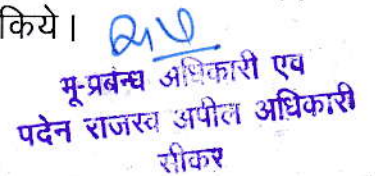 किये।
भू-प्रबन्ध अधिकारी एवं
पदेन राजस्व अपील अधिकारी
सीकर